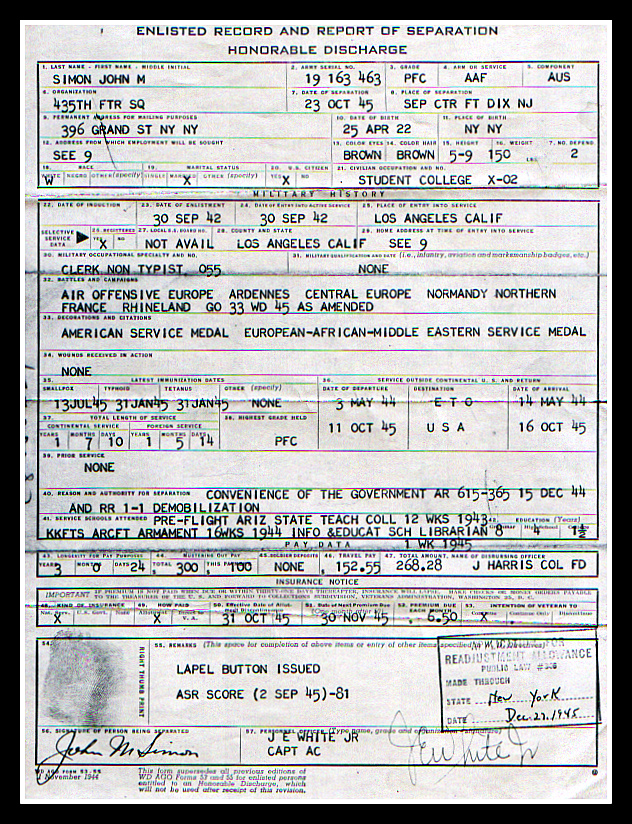 ENLISTED RECORD AND REPORT OF SEPARATION
HONORABLE DISCHARGE
1. LAST NAME - FIRST NAME - MIDDLE INITIAL 2. ARMY SERIAL NO. 3. GRADE 4. ARM OR SERVICE 5. COMPONENT
SIMON JOHN M 19 163 463 PFC AAF AUS
6. ORGANIZATION 7. DATE OF SEPARATION 8. PLACE OF SEPARATION
435TH FTR SQ 23 OCT 45 SEP CTR FT DIX NJ
9. PERMANENT ADDRESS FOR MAILING PURPOSES 10. DATE OF BIRTH 11. PLACE OF BIRTH
396 GRAND ST NY NY 25 APR 22 NY NY
12. ADDRESS FROM WHICH EMPLOYMENT WILL BE SOUGHT 13. COLOR EYES 14. COLOR HAIR 15. HEIGHT 16. WEIGHT 17. NO. DEPEND.
SEE 9 BROWN BROWN 5-9 150 LBS. 2
18. RACE 19. MARITAL STATUS 20. U.S. CITIZEN 21. CIVILIAN OCCUPATION AND NO.
W WHITE NEGRO OTHER (specify) SINGLE MARRIED X OTHER (specify) YES X NO STUDENT COLLEGE X-02
MILITARY HISTORY
22. DATE OF INDUCTION 23. DATE OF ENLISTMENT 24. DATE OF ENTRY INTO ACTIVE SERVICE 25. PLACE OF ENTRY INTO SERVICE
30 SEP 42 30 SEP 42 LOS ANGELES CALIF
SELECTIVE SERVICE DATA 26. REGISTERED YES X NO 27. LOCAL S.S. BOARD NO. 28. COUNTY AND STATE 29. HOME ADDRESS AT TIME OF ENTRY INTO SERVICE
NOT AVAIL LOS ANGELES CALIF SEE 9
30. MILITARY OCCUPATIONAL SPECIALTY AND NO. 31. MILITARY QUALIFICATION AND DATE (i.e., infantry, aviation and marksmanship badges, etc.)
CLERK NON TYPIST 055 NONE
32. BATTLES AND CAMPAIGNS
AIR OFFENSIVE EUROPE ARDENNES CENTRAL EUROPE NORMANDY NORTHERN
FRANCE RHINELAND GO 33 WD 45 AS AMENDED
33. DECORATIONS AND CITATIONS
AMERICAN SERVICE MEDAL EUROPEAN-AFRICAN-MIDDLE EASTERN SERVICE MEDAL
34. WOUNDS RECEIVED IN ACTION
NONE
35. LATEST IMMUNIZATION DATES 36. SERVICE OUTSIDE CONTINENTAL U. S. AND RETURN
SMALLPOX TYPHOID TETANUS OTHER (specify) DATE OF DEPARTURE DESTINATION DATE OF ARRIVAL
13JUL45 31JAN45 31JAN45 NONE 3 MAY 44 E T O 14 MAY 44
37. TOTAL LENGTH OF SERVICE 38. HIGHEST GRADE HELD
CONTINENTAL SERVICE FOREIGN SERVICE 11 OCT 45 U S A 16 OCT 45
YEARS MONTHS DAYS YEARS MONTHS DAYS
1 7 10 1 5 14 PFC
39. PRIOR SERVICE
NONE
40. REASON AND AUTHORITY FOR SEPARATION CONVENIENCE OF THE GOVERNMENT AR 615-365 15 DEC 44
AND RR 1-1 DEMOBILIZATION
41. SERVICE SCHOOLS ATTENDED PRE-FLIGHT ARIZ STATE TEACH COLL 12 WKS 1943 42. EDUCATION (Years)
KKFTS ARCFT ARMAMENT 16WKS 1944 INFO &EDUCAT SCH LIBRARIAN 8 4 1½
PAY DATA 1 WK 1945
43. LONGEVITY FOR PAY PURPOSES 44. MUSTERING OUT PAY 45. SOLDIER DEPOSITS 46. TRAVEL PAY 47. TOTAL AMOUNT, NAME OF DISBURSING OFFICER
YEARS 3 MONTHS 0 DAYS 24 TOTAL 300 THIS PAYMENT 100 NONE 152.55 268.28 J HARRIS COL FD
INSURANCE NOTICE
IMPORTANT IF PREMIUM IS NOT PAID WHEN DUE OR WITHIN THIRTY-ONE DAYS THEREAFTER, INSURANCE WILL LAPSE. MAKE CHECKS OR MONEY ORDERS PAYABLE
TO THE TREASURER OF THE U. S. AND FORWARD TO COLLECTIONS SUBDIVISION, VETERANS ADMINISTRATION, WASHINGTON 25, D. C.
48. KIND OF INSURANCE 49. HOW PAID 50. Effective Date of Allotment Discontinuance 51. Date of Next Premium Due 52. PREMIUM DUE EACH MONTH 53. INTENTION OF VETERAN TO
X X 31 OCT 45 30 NOV 45 6.50 X
54. 55. REMARKS (This space for completion of above items or entry of other items specified in W. D. Directives)
RIGHT THUMB PRINT
LAPEL BUTTON ISSUED
ASR SCORE (2 SEP 45)-81
READJUSTMENT ALLOWANCE
PUBLIC LAW #346
MADE THROUGH
STATE New York
DATE Dec. 27, 1945
56. SIGNATURE OF PERSON BEING SEPARATED 57. PERSONNEL OFFICER (Type name, grade and organization - signature)
John M Simon J E WHITE JR J E White Jr
CAPT AC
WD AGO FORM 53-55
1 November 1944
This form supersedes all previous editions of
WD AGO Forms 53 and 55 for enlisted persons
entitled to an Honorable Discharge, which
will not be used after receipt of this revision.